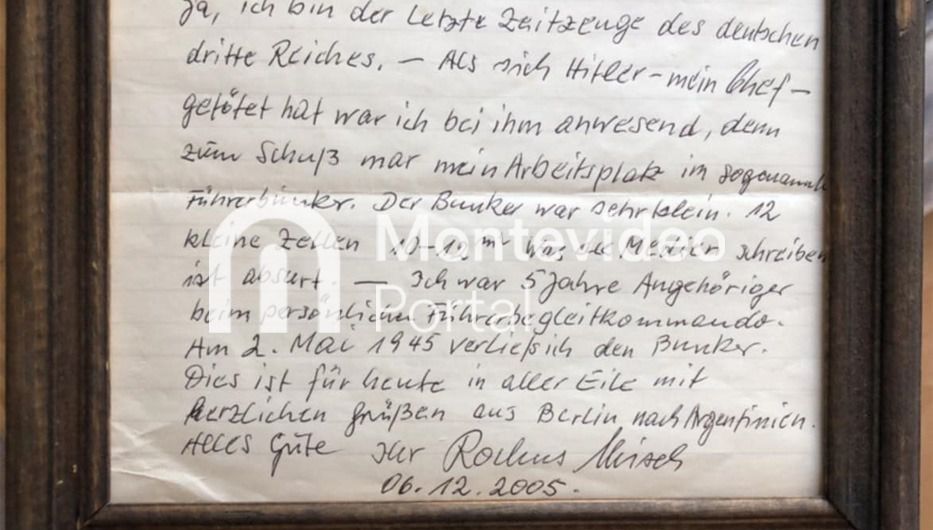 Ja, ich bin der letzte Zeitzeuge des deutschen
dritte Reiches. — Als sich Hitler – mein Chef –
getötet hat war ich bei ihm anwesend, denn
zum Schuß war mein Arbeitsplatz im sogenannt
Führerbunker. Der Bunker war sehr klein. 12
kleine Zellen 10–12 m² Was die Medien schreiben
ist absurt. — Ich war 5 Jahre Angehöriger
beim persönlichen Führerbegleitkommando.
Am 2. Mai 1945 verließ ich den Bunker.
Dies ist für heute in aller Eile mit
herzlichen Grüßen aus Berlin nach Argentinien.
Alles Gute Ihr Rochus Misch
06.12.2005.
Montevideo
Portal